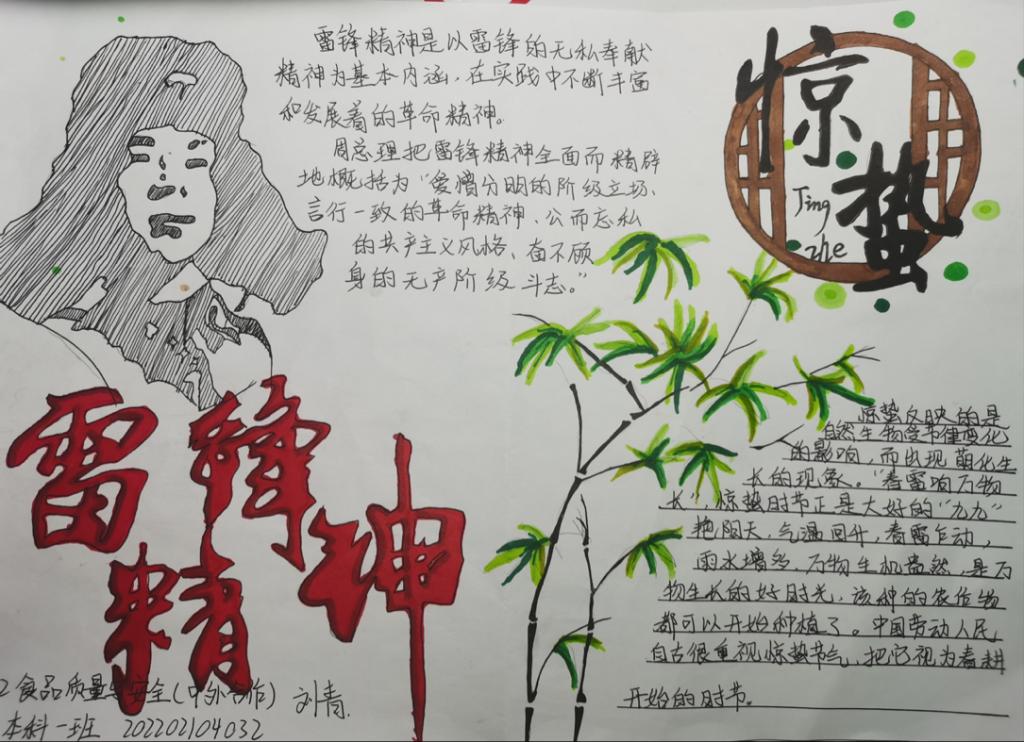 雷锋精神是以雷锋的无私奉献
精神为基本内涵,在实践中不断丰富
和发展着的革命精神。
周总理把雷锋精神全面而精辟
地概括为“爱憎分明的阶级立场、
言行一致的革命精神、公而忘私
的共产主义风格、奋不顾
身的无产阶级斗志。”
惊
蛰
Jing
zhe
雷锋
精神
惊蛰反映的是
自然生物受节律变化
的影响,而出现萌化生
长的现象。“春雷响万物
长”,惊蛰时节正是大好的“九九”
艳阳天,气温回升,春雷乍动,
雨水增多,万物生机盎然,是万
物生长的好时光,该种的农作物
都可以开始种植了。中国劳动人民
自古很重视惊蛰节气,把它视为春耕
开始的时节。
2食品质量与安全(中外合作) 刘青.
本科一班 202202104032